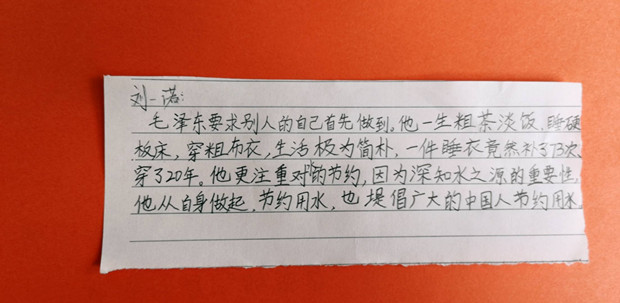 刘一诺:
毛泽东要求别人的自己首先做到。他一生粗茶淡饭,睡硬
板床,穿粗布衣,生活极为简朴,一件睡衣竟然补了73次,
穿了20年。他更注重对水的节约,因为深知水之源的重要性,
他从自身做起,节约用水,也堤倡广大的中国人节约用水。